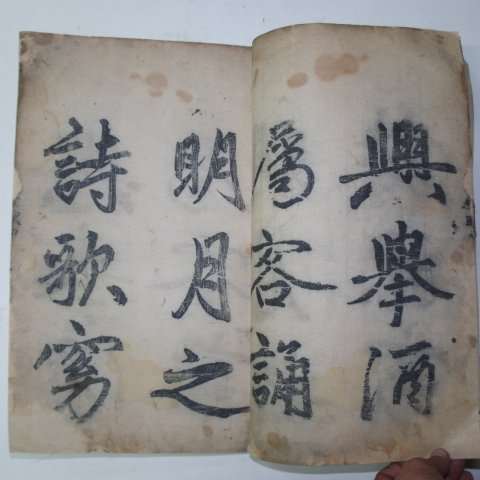 興舉酒
屬客誦
明月之
詩歌窈